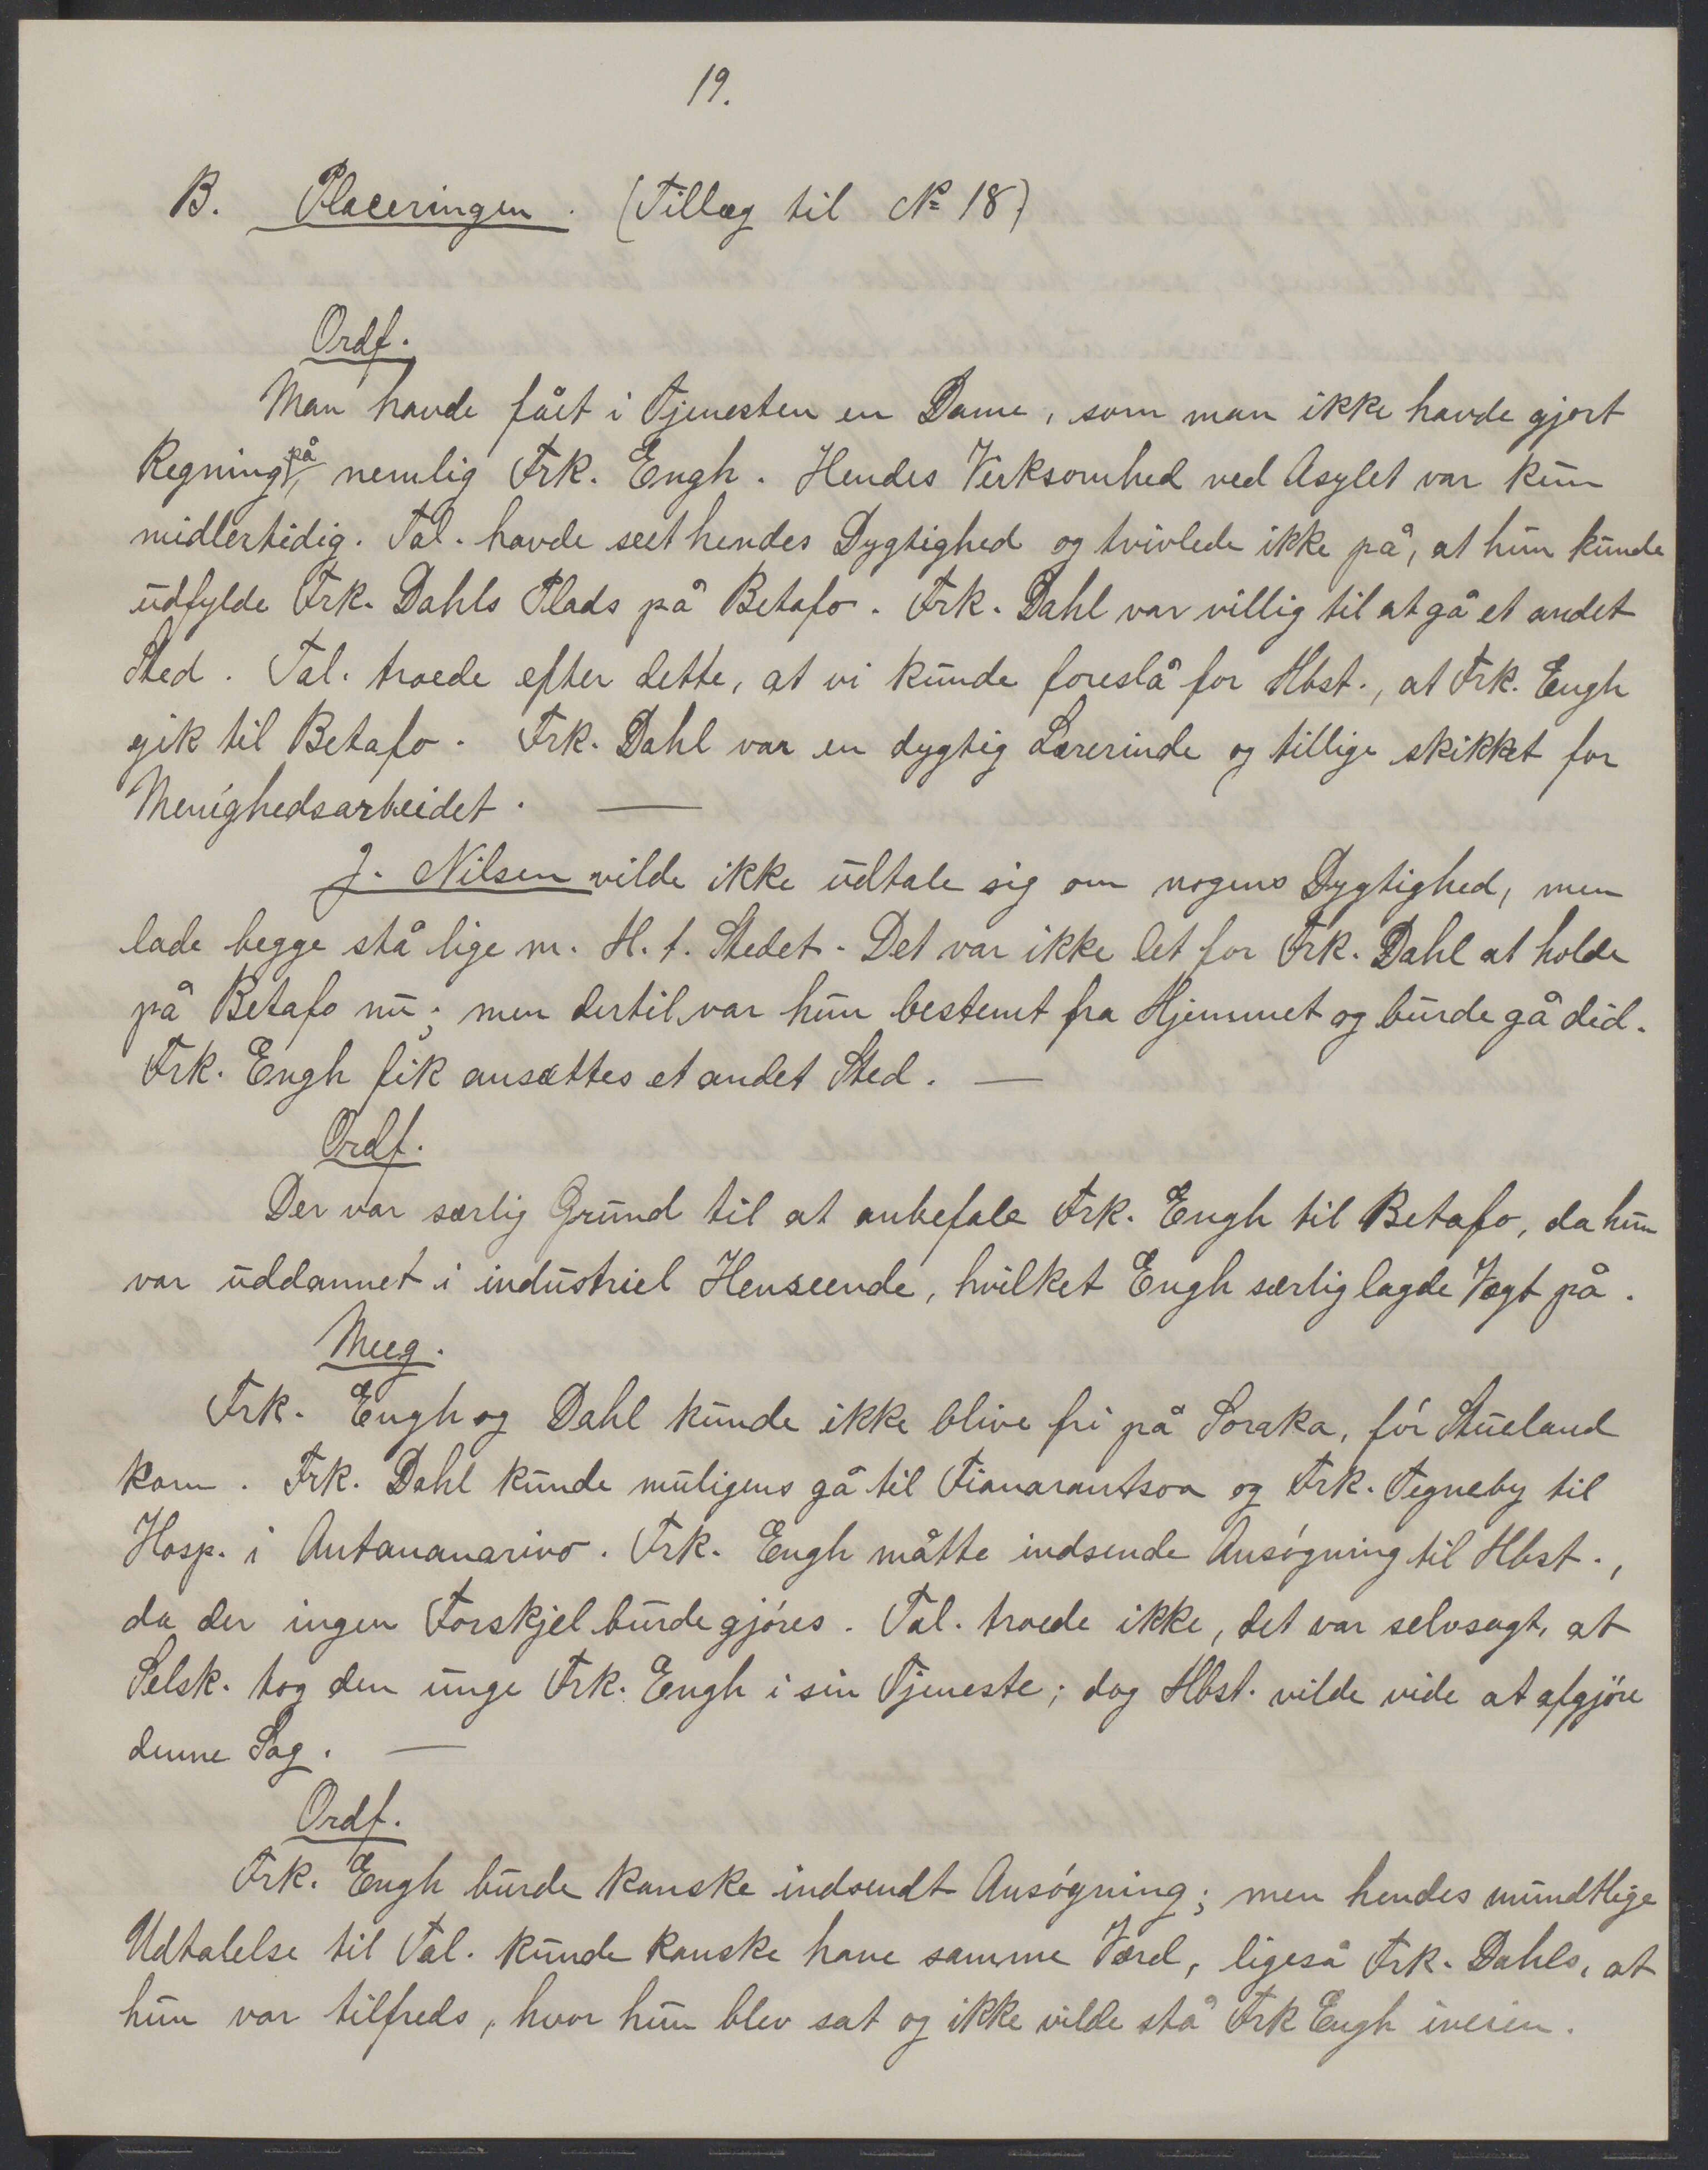 19.
B. Placeringen. (Tillæg til № 18)
Ordf.
Man havde fået i Tjenesten en Dame, som man ikke havde gjort
Regning på, nemlig Frk. Engh. Hendes Virksomhed ved Asylet var kun
midlertidig. Tal. havde seet hendes Dygtighed og tvivlede ikke på, at hun kunde
udfylde Frk. Dahls Plads på Betafo. Frk. Dahl var villig til at gå et andet
Sted. Tal. troede efter dette, at vi kunde foreslå for Hbst., at Frk. Engh
gik til Betafo. Frk. Dahl var en dygtig Lærerinde og tillige skikket for
Menighedsarbeidet. —
J. Nilsen vilde ikke udtale sig om nogens Dygtighed, men
lade begge stå lige m. H. t. Stedet. Det var ikke let for Frk. Dahl at holde
på Betafo nu; men dertil var hun bestemt fra Hjemmet og burde gå did.
Frk. Engh fik ansættes et andet Sted. —
Ordf.
Der var særlig Grund til at anbefale Frk. Engh til Betafo, da hun
var uddannet i industriel Henseende, hvilket Engh særlig lagde Vægt på.
Meeg.
Frk. Engh og Dahl kunde ikke blive fri på Soraka, før Stueland
kom. Frk. Dahl kunde muligens gå til Fianarantsoa og Frk. Tegneby til
Hosp. i Antananarivo. Frk. Engh måtte indsende Ansøgning til Hbst.,
da der ingen Forskjel burde gjøres. Tal. troede ikke, det var selvsagt, at
Selsk. tog den unge Frk. Engh i sin Tjeneste; dog Hbst. vilde vide at afgjöre
denne Sag. —
Ordf.
Frk. Engh burde kanske indsendt Ansøgning; men hendes mundtlige
Udtalelse til Tal. kunde kanske have samme Værd, ligeså Frk. Dahls, at
hun var tilfreds, hvor hun blev sat og ikke vilde stå Frk Engh iveien.